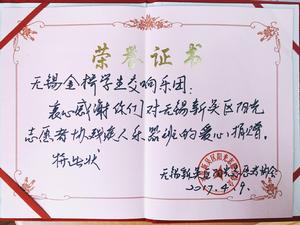 荣誉证书
无锡金桥学生交响乐团:
衷心感谢你们对无锡新吴区阳光
志愿者协残疾人乐器班的爱心捐赠。
特此状
无锡新吴区阳光志愿者协会
2017.4.9.